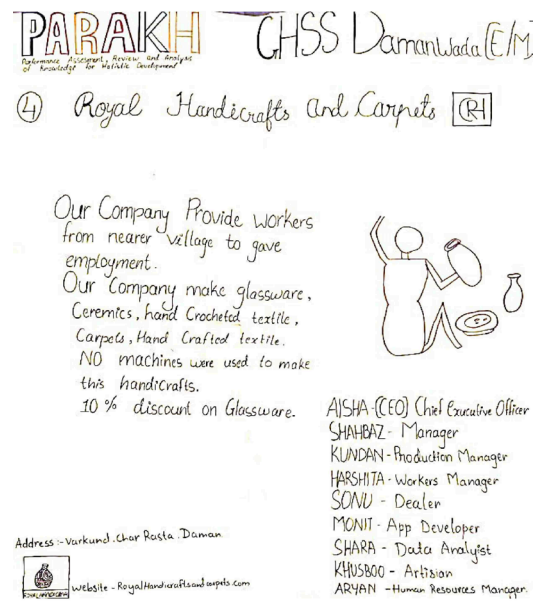 PARAKH
Performance Assessment, Review and Analysis
of Knowledge for Holistic Development
GHSS DamanWada (E/M)
4 Royal Handicrafts and Carpets RH
Our Company Provide workers
from nearer village to gave
employment.
Our Company make glassware,
Ceremics, hand Crocheted textile,
Carpets, Hand Crafted textile.
NO machines were used to make
this handicrafts.
10 % discount on Glassware.
AISHA-(CEO) Chief Excutive Officer
SHAHBAZ - Manager
KUNDAN - Production Manager
HARSHITA - Workers Manager
SONU - Dealer
MONIT - App Developer
SHARA - Data Analyist
KHUSBOO - Artisian
ARYAN - Human Resources Manager.
Address :- Varkund . Char Rasta . Daman
Website - RoyalHandicraftsandcarpets.com